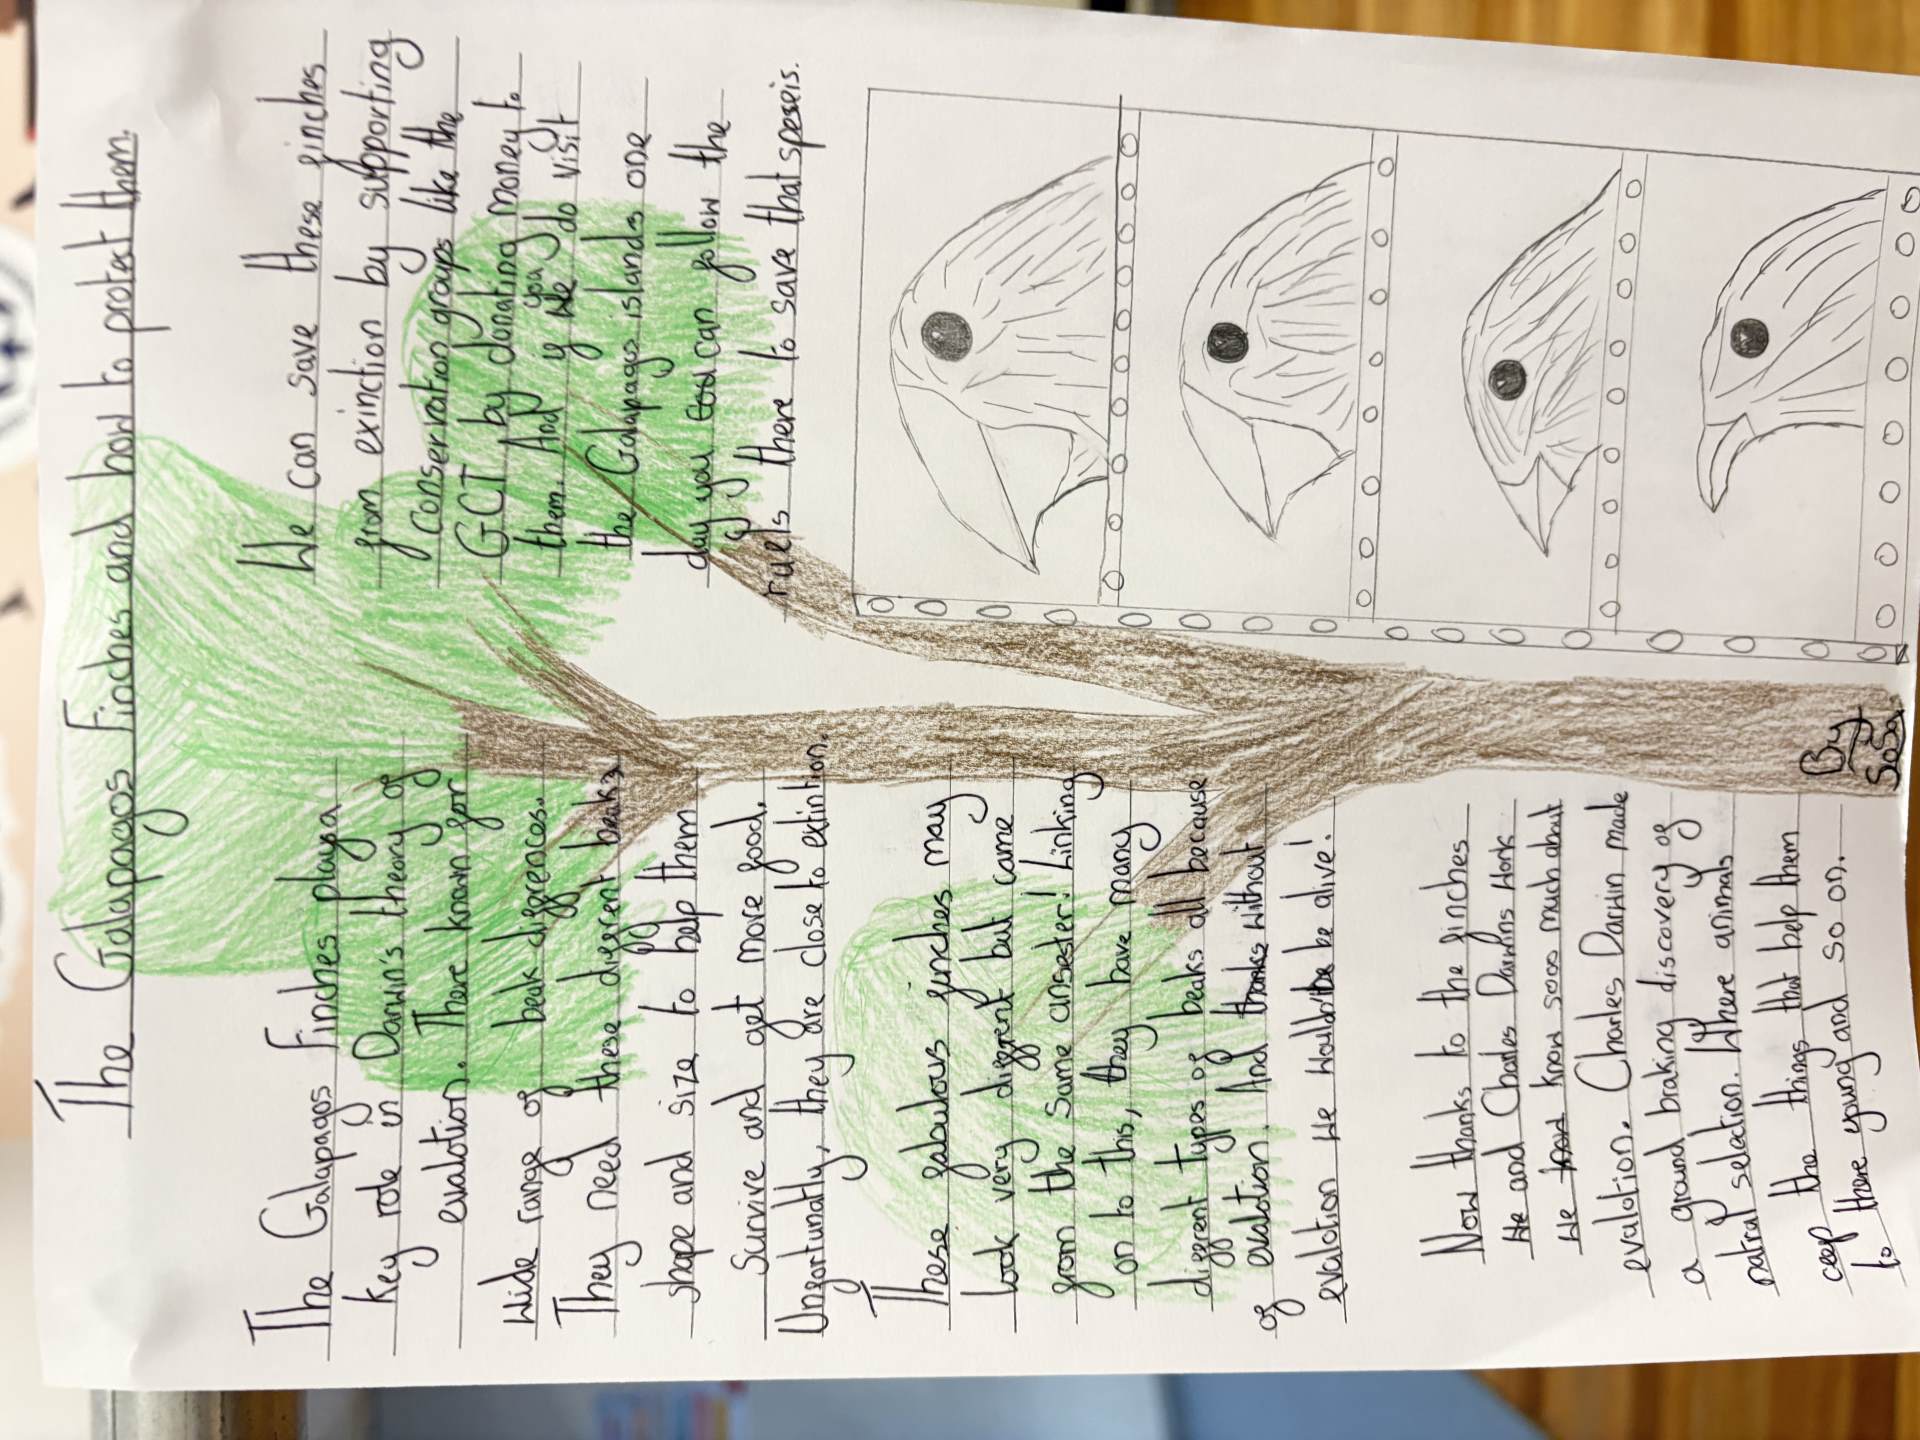 The Galapagos Finches and how to protect them.
The Galapagos Finches play a
key role in Darwin's theory of
evalotion. There known for
wide range of beak differences.
They need these different beaks
shape and size to help them
survive and get more food.
Unfortunatly, they are close to extintion.
These fabulous finches may
look very diffrent but came
from the same ansester! Linking
on to this, they have many
diffrent types of beaks all because
of evalotion. And thanks without
evalotion we wouldn't be alive!
Now thanks to the finches
We and Charles Darwins work
we know sooo much about
evalotion. Charles Darwin made
a ground braking discovery of
natral selection. Where animals
ceep the things that help them
to there young and so on.
We can save these finches
from exinction by supporting
conservation groups like the
GCT by donating money to
them. And if you do visit
the Galapagos islands one
day you can follow the
ruels there to save that speseis.
By
Sosa